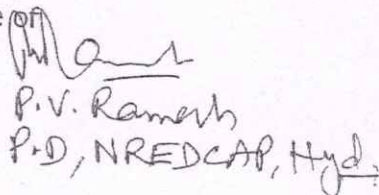 e of
P.V. Ramesh
P.D, NREDCAP, Hyd.